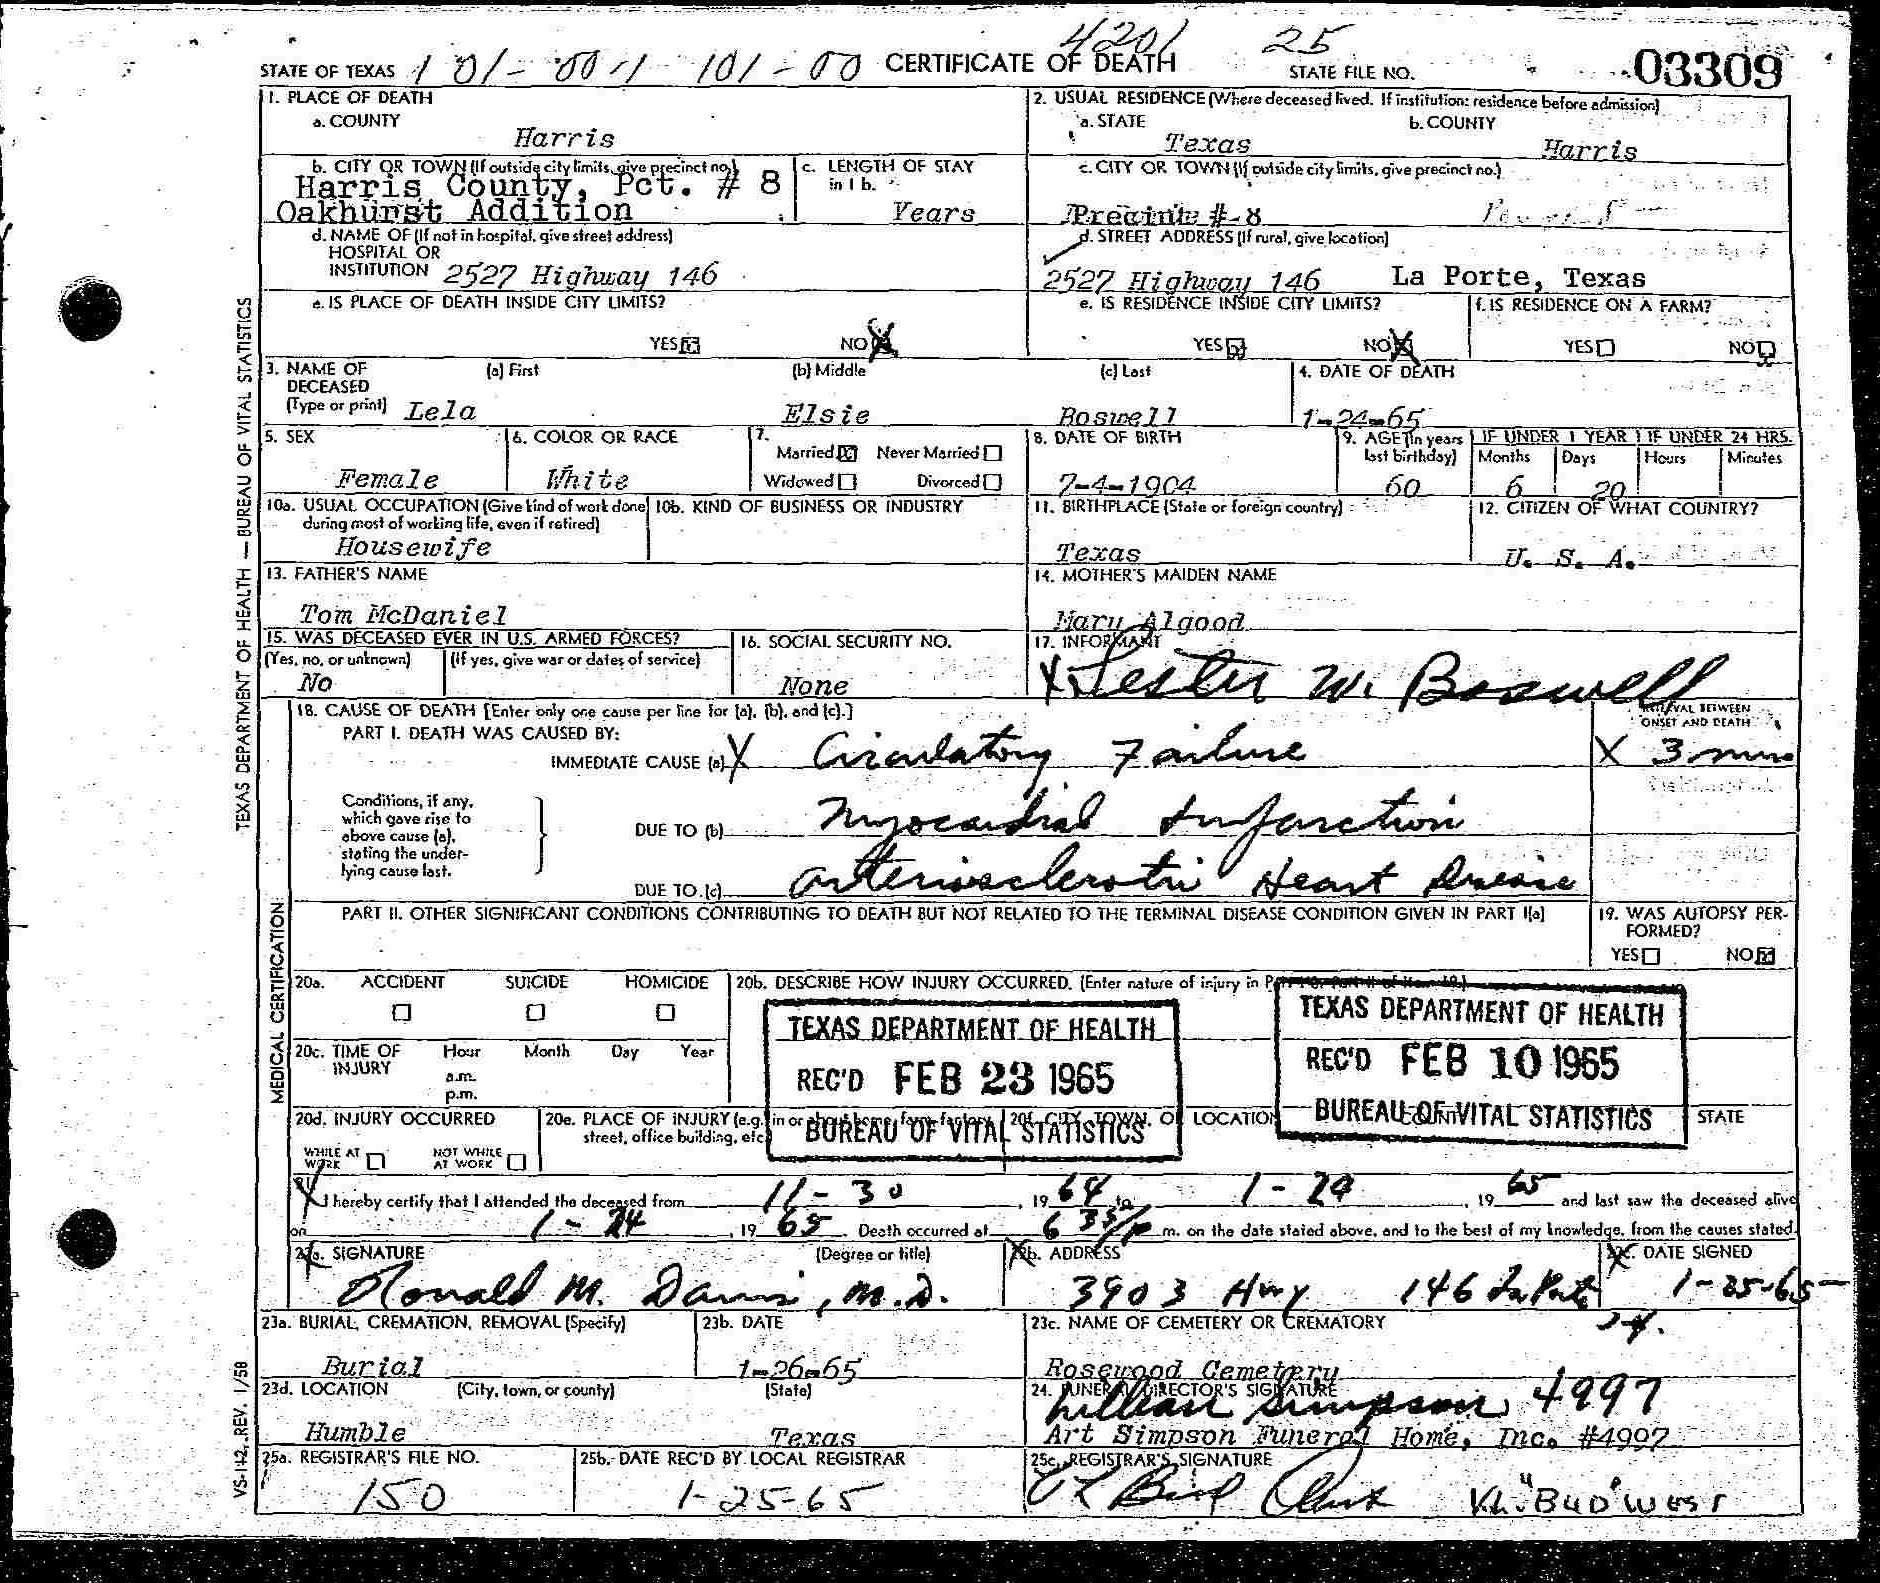 4201 25
STATE OF TEXAS 101-00-1 101-00 CERTIFICATE OF DEATH STATE FILE NO. 03309
1. PLACE OF DEATH
a. COUNTY
Harris
2. USUAL RESIDENCE (Where deceased lived. If institution: residence before admission)
a. STATE b. COUNTY
Texas Harris
b. CITY OR TOWN (If outside city limits, give precinct no.)
Harris County, Pct. # 8
Oakhurst Addition
c. LENGTH OF STAY
in 1 b.
Years
c. CITY OR TOWN (If outside city limits, give precinct no.)
Precinte #-8
d. NAME OF (If not in hospital, give street address)
HOSPITAL OR
INSTITUTION 2527 Highway 146
d. STREET ADDRESS (If rural, give location)
2527 Highway 146 La Porte, Texas
e. IS PLACE OF DEATH INSIDE CITY LIMITS?
YES NO
e. IS RESIDENCE INSIDE CITY LIMITS?
YES NO
f. IS RESIDENCE ON A FARM?
YES NO
3. NAME OF DECEASED
(Type or print)
(a) First (b) Middle (c) Last
Lela Elsie Boswell
4. DATE OF DEATH
1-24-65
5. SEX
Female
6. COLOR OR RACE
White
7.
Married Never Married
Widowed Divorced
8. DATE OF BIRTH
7-4-1904
9. AGE (In years
last birthday)
60
IF UNDER 1 YEAR IF UNDER 24 HRS.
Months Days Hours Minutes
6 20
10a. USUAL OCCUPATION (Give kind of work done
during most of working life, even if retired)
Housewife
10b. KIND OF BUSINESS OR INDUSTRY
11. BIRTHPLACE (State or foreign country)
Texas
12. CITIZEN OF WHAT COUNTRY?
U. S. A.
13. FATHER'S NAME
Tom McDaniel
14. MOTHER'S MAIDEN NAME
Mary Algood
15. WAS DECEASED EVER IN U.S. ARMED FORCES?
(Yes, no, or unknown) (If yes, give war or dates of service)
No
16. SOCIAL SECURITY NO.
None
17. INFORMANT
X Lester W. Boswell
18. CAUSE OF DEATH [Enter only one cause per line for (a), (b), and (c).]
INTERVAL BETWEEN
ONSET AND DEATH
PART I. DEATH WAS CAUSED BY:
IMMEDIATE CAUSE (a) X Circulatory Failure X 3 mins
Conditions, if any,
which gave rise to
above cause (a),
stating the under-
lying cause last.
DUE TO (b) Myocardial Infarction
DUE TO (c) Arteriosclerotic Heart Disease
PART II. OTHER SIGNIFICANT CONDITIONS CONTRIBUTING TO DEATH BUT NOT RELATED TO THE TERMINAL DISEASE CONDITION GIVEN IN PART I(a)
19. WAS AUTOPSY PER-
FORMED?
YES NO
20a. ACCIDENT SUICIDE HOMICIDE
20b. DESCRIBE HOW INJURY OCCURRED. (Enter nature of injury in
TEXAS DEPARTMENT OF HEALTH
REC'D FEB 23 1965
BUREAU OF VITAL STATISTICS
TEXAS DEPARTMENT OF HEALTH
REC'D FEB 10 1965
BUREAU OF VITAL STATISTICS
20c. TIME OF
INJURY
Hour Month Day Year
a.m.
p.m.
20d. INJURY OCCURRED
WHILE AT
WORK
NOT WHILE
AT WORK
20e. PLACE OF INJURY (e.g. in or about home, farm, factory,
street, office building, etc
20f. CITY, TOWN, OR LOCATION COUNTY STATE
21. I hereby certify that I attended the deceased from 11-30, 19 64 to 1-24, 19 65 and last saw the deceased alive
on 1-24, 19 65. Death occurred at 6 35/p m. on the date stated above, and to the best of my knowledge, from the causes stated.
22a. SIGNATURE (Degree or title)
Ronald M. Davis, M.D.
22b. ADDRESS
3903 Hwy 146 La Porte
22c. DATE SIGNED
1-25-65
23a. BURIAL, CREMATION, REMOVAL (Specify)
Burial
23b. DATE
1-26-65
23c. NAME OF CEMETERY OR CREMATORY
Rosewood Cemetery
23d. LOCATION (City, town, or county) (State)
Humble Texas
24. FUNERAL DIRECTOR'S SIGNATURE
Lillian Simpson 4997
Art Simpson Funeral Home, Inc. #4997
25a. REGISTRAR'S FILE NO.
150
25b. DATE REC'D BY LOCAL REGISTRAR
1-25-65
25c. REGISTRAR'S SIGNATURE
V.L. "BUD" WEST
TEXAS DEPARTMENT OF HEALTH — BUREAU OF VITAL STATISTICS
MEDICAL CERTIFICATION
VS-142, REV. 1/58